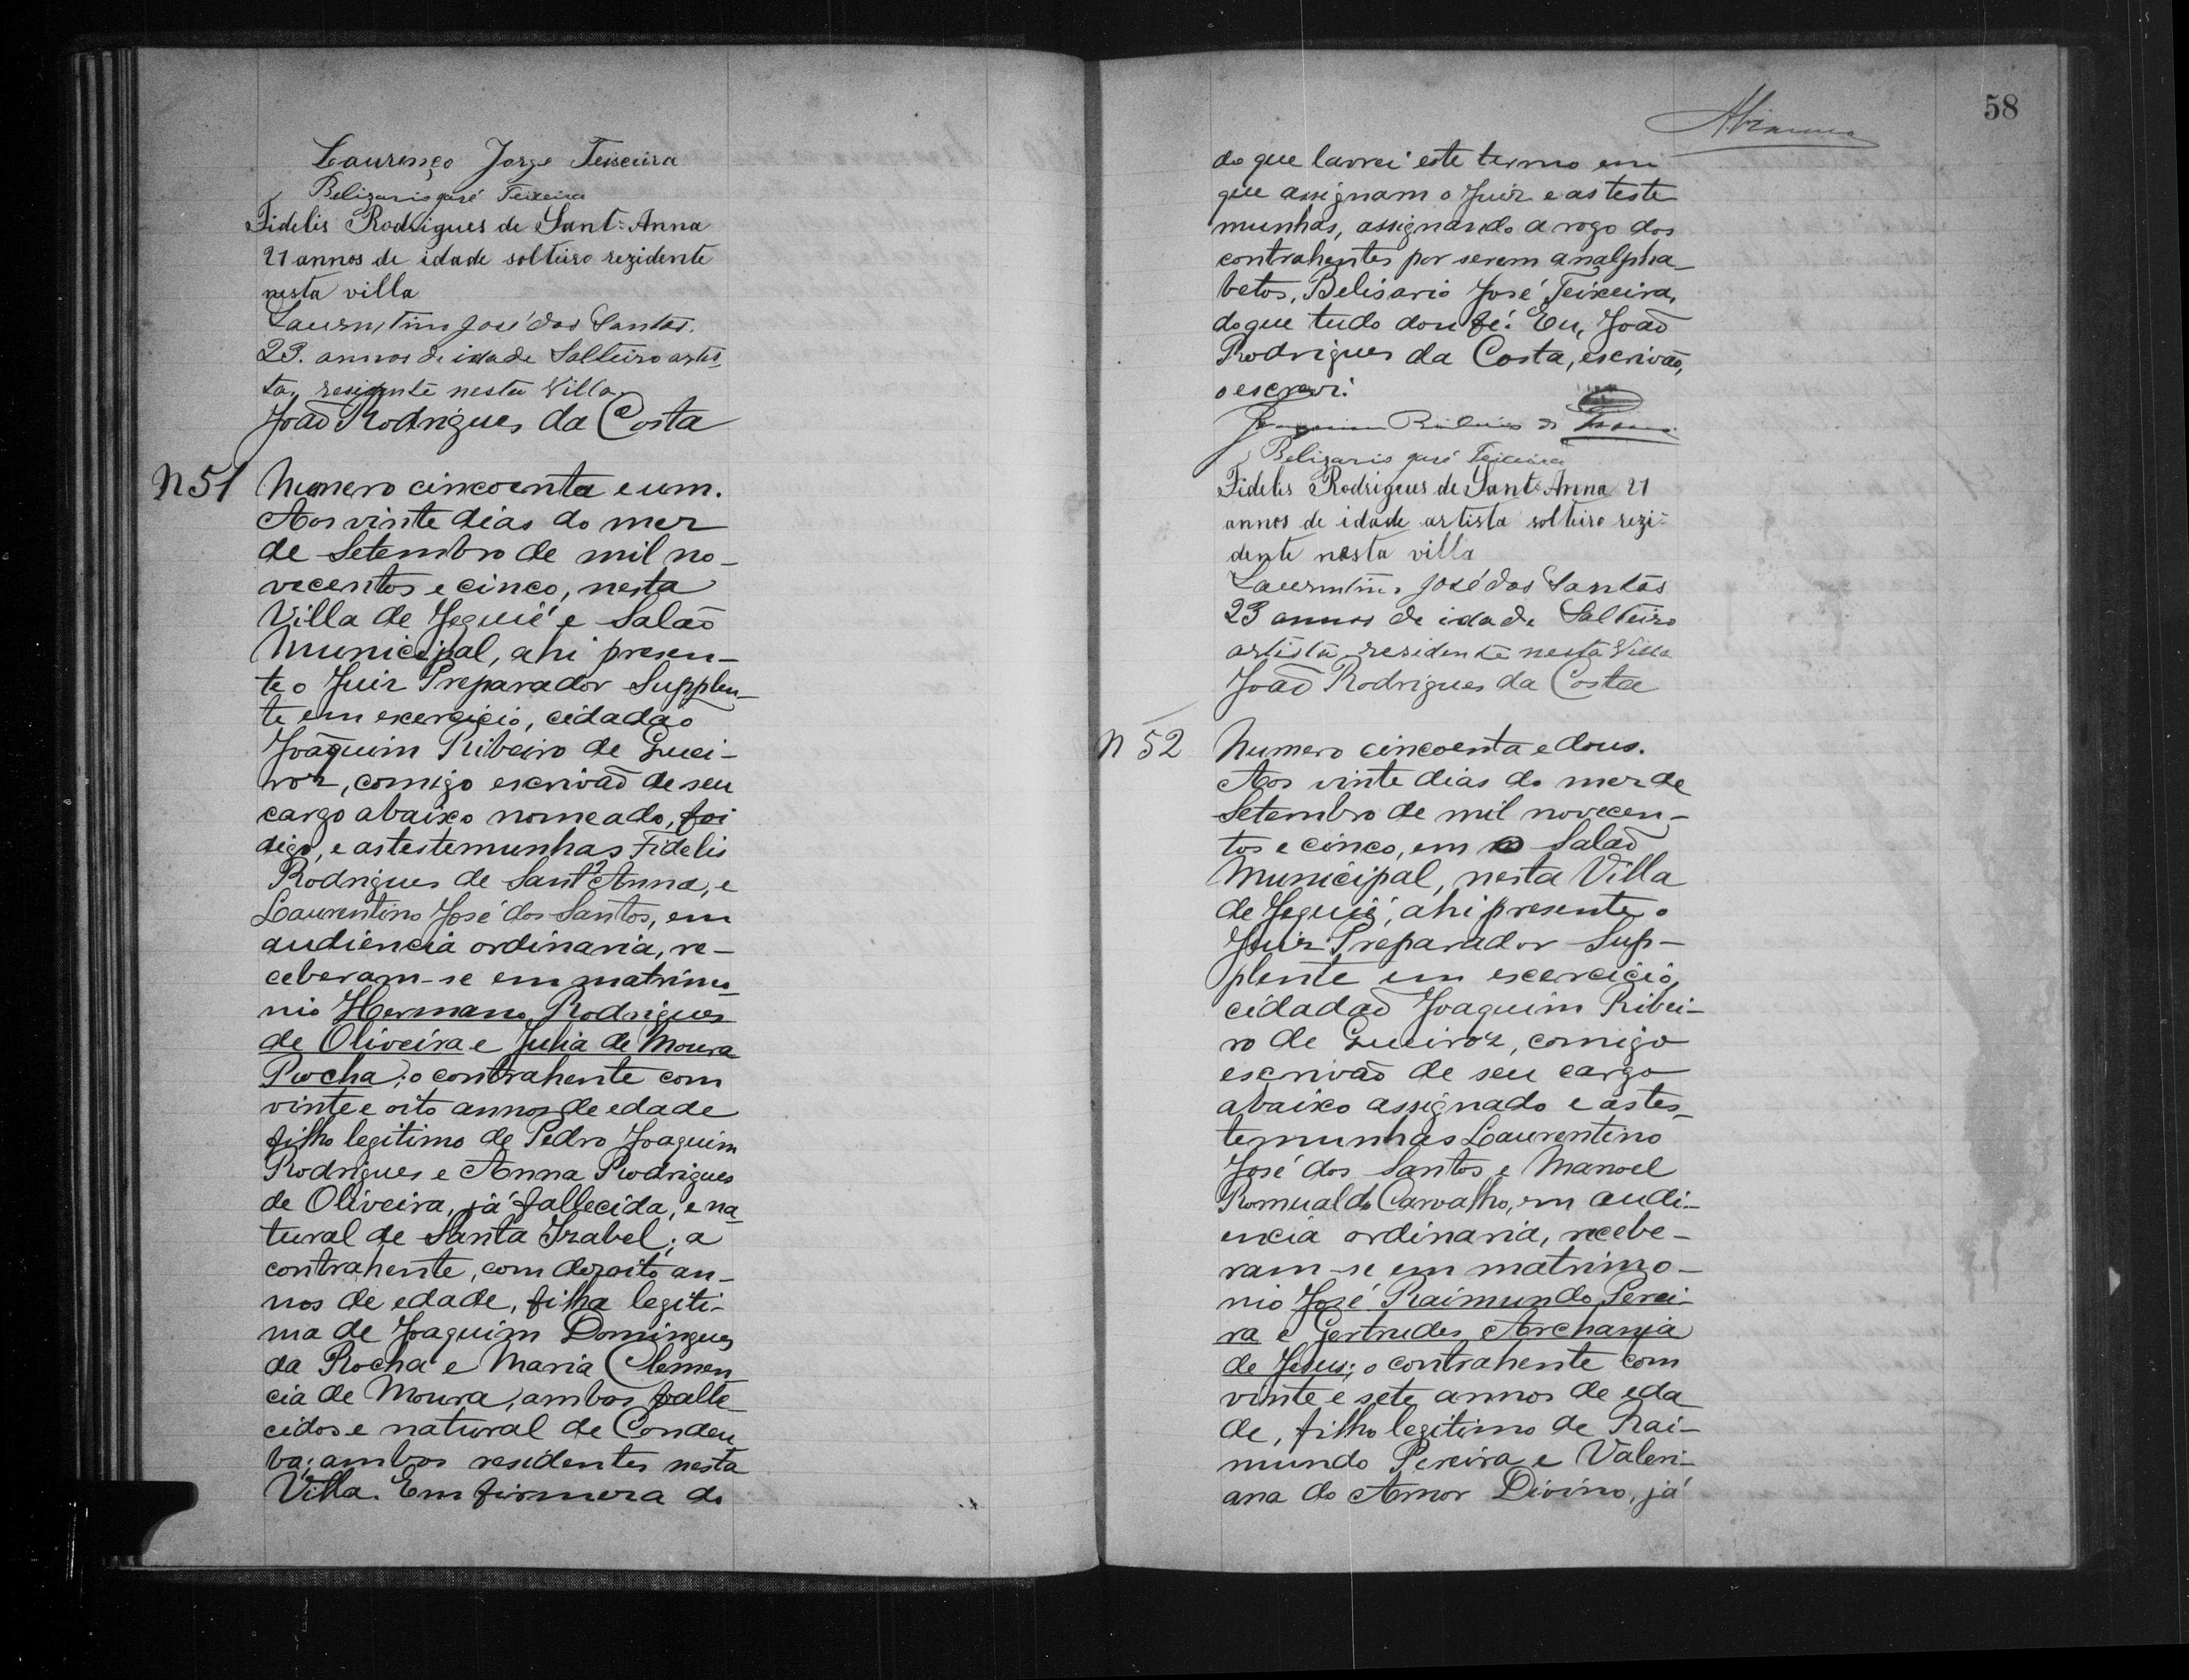 Laurenço Jorge Teixeira
Belizario José Teixeira
Fidelis Rodrigues de Sant'Anna
21 annos de idade solteiro rezidente
nesta villa
Laurentino José dos Santos.
23. annos de idade Solteiro artis
ta, residente nesta Villa
João Rodrigues da Costa
N 51 Numero cincoenta e um.
Aos vinte dias do mez
de Setembro de mil no-
vecentos e cinco, nesta
Villa de Jequié e Salão
Municipal, ahi presen-
te o Juiz Preparador Supplen-
te em exercicio, cidadão
Joaquim Ribeiro de Quei-
roz, comigo escrivão de seu
cargo abaixo nomeado, foi
digo, e as testemunhas Fidelis
Rodrigues de Sant'Anna, e
Laurentino José dos Santos, em
audiencia ordinaria, re-
ceberam-se em matrimo-
nio Hermano Rodrigues
de Oliveira e Julia de Moura
Rocha; o contrahente com
vinte e oito annos de edade
filho legitimo de Pedro Joaquim
Rodrigues e Anna Rodrigues
de Oliveira, já fallecida, e na-
tural de Santa Izabel; a
contrahente, com dezoito an-
nos de edade, filha legiti-
ma de Joaquim Domingues
da Rocha e Maria Clemen-
cia de Moura, ambos falle-
cidos e natural de Condeu
ba; ambos residentes nesta
Villa. Em firmeza do
58
do que lavrei este termo em
que assignam o Juiz e as teste
munhas, assignando a rogo dos
contrahentes por serem analpha-
betos, Belisario José Teixeira,
do que tudo dou fé. Eu, João
Rodrigues da Costa, escrivão,
o escrevi.
Joaquim Ribeiro de
Belizario José Teixeira
Fidelis Rodrigues de Sant'Anna 21
annos de idade artista solteiro rezi-
dente nesta villa
Laurentino José dos Santos
23 annos de idade Solteiro
artista, residente nesta Villa
João Rodrigues da Costa
N 52 Numero cincoenta e dous.
Aos vinte dias do mez de
Setembro de mil novecen-
tos e cinco, em o Salão
Municipal, nesta Villa
de Jequié, ahi presente o
Juiz Preparador Sup-
plente em exercicio,
cidadão Joaquim Ribei-
ro de Queiroz, comigo
escrivão de seu cargo
abaixo assignado e as tes-
temunhas Laurentino
José dos Santos e Manoel
Romualdo Carvalho, em audi-
encia ordinaria, recebe-
ram-se em matrimo-
nio José Raimundo Perei-
ra e Gertrudes Archanja
de Jesus; o contrahente com
vinte e sete annos de eda
de, filho legitimo de Rai-
mundo Pereira e Valeri-
ana do Amor Divino, já